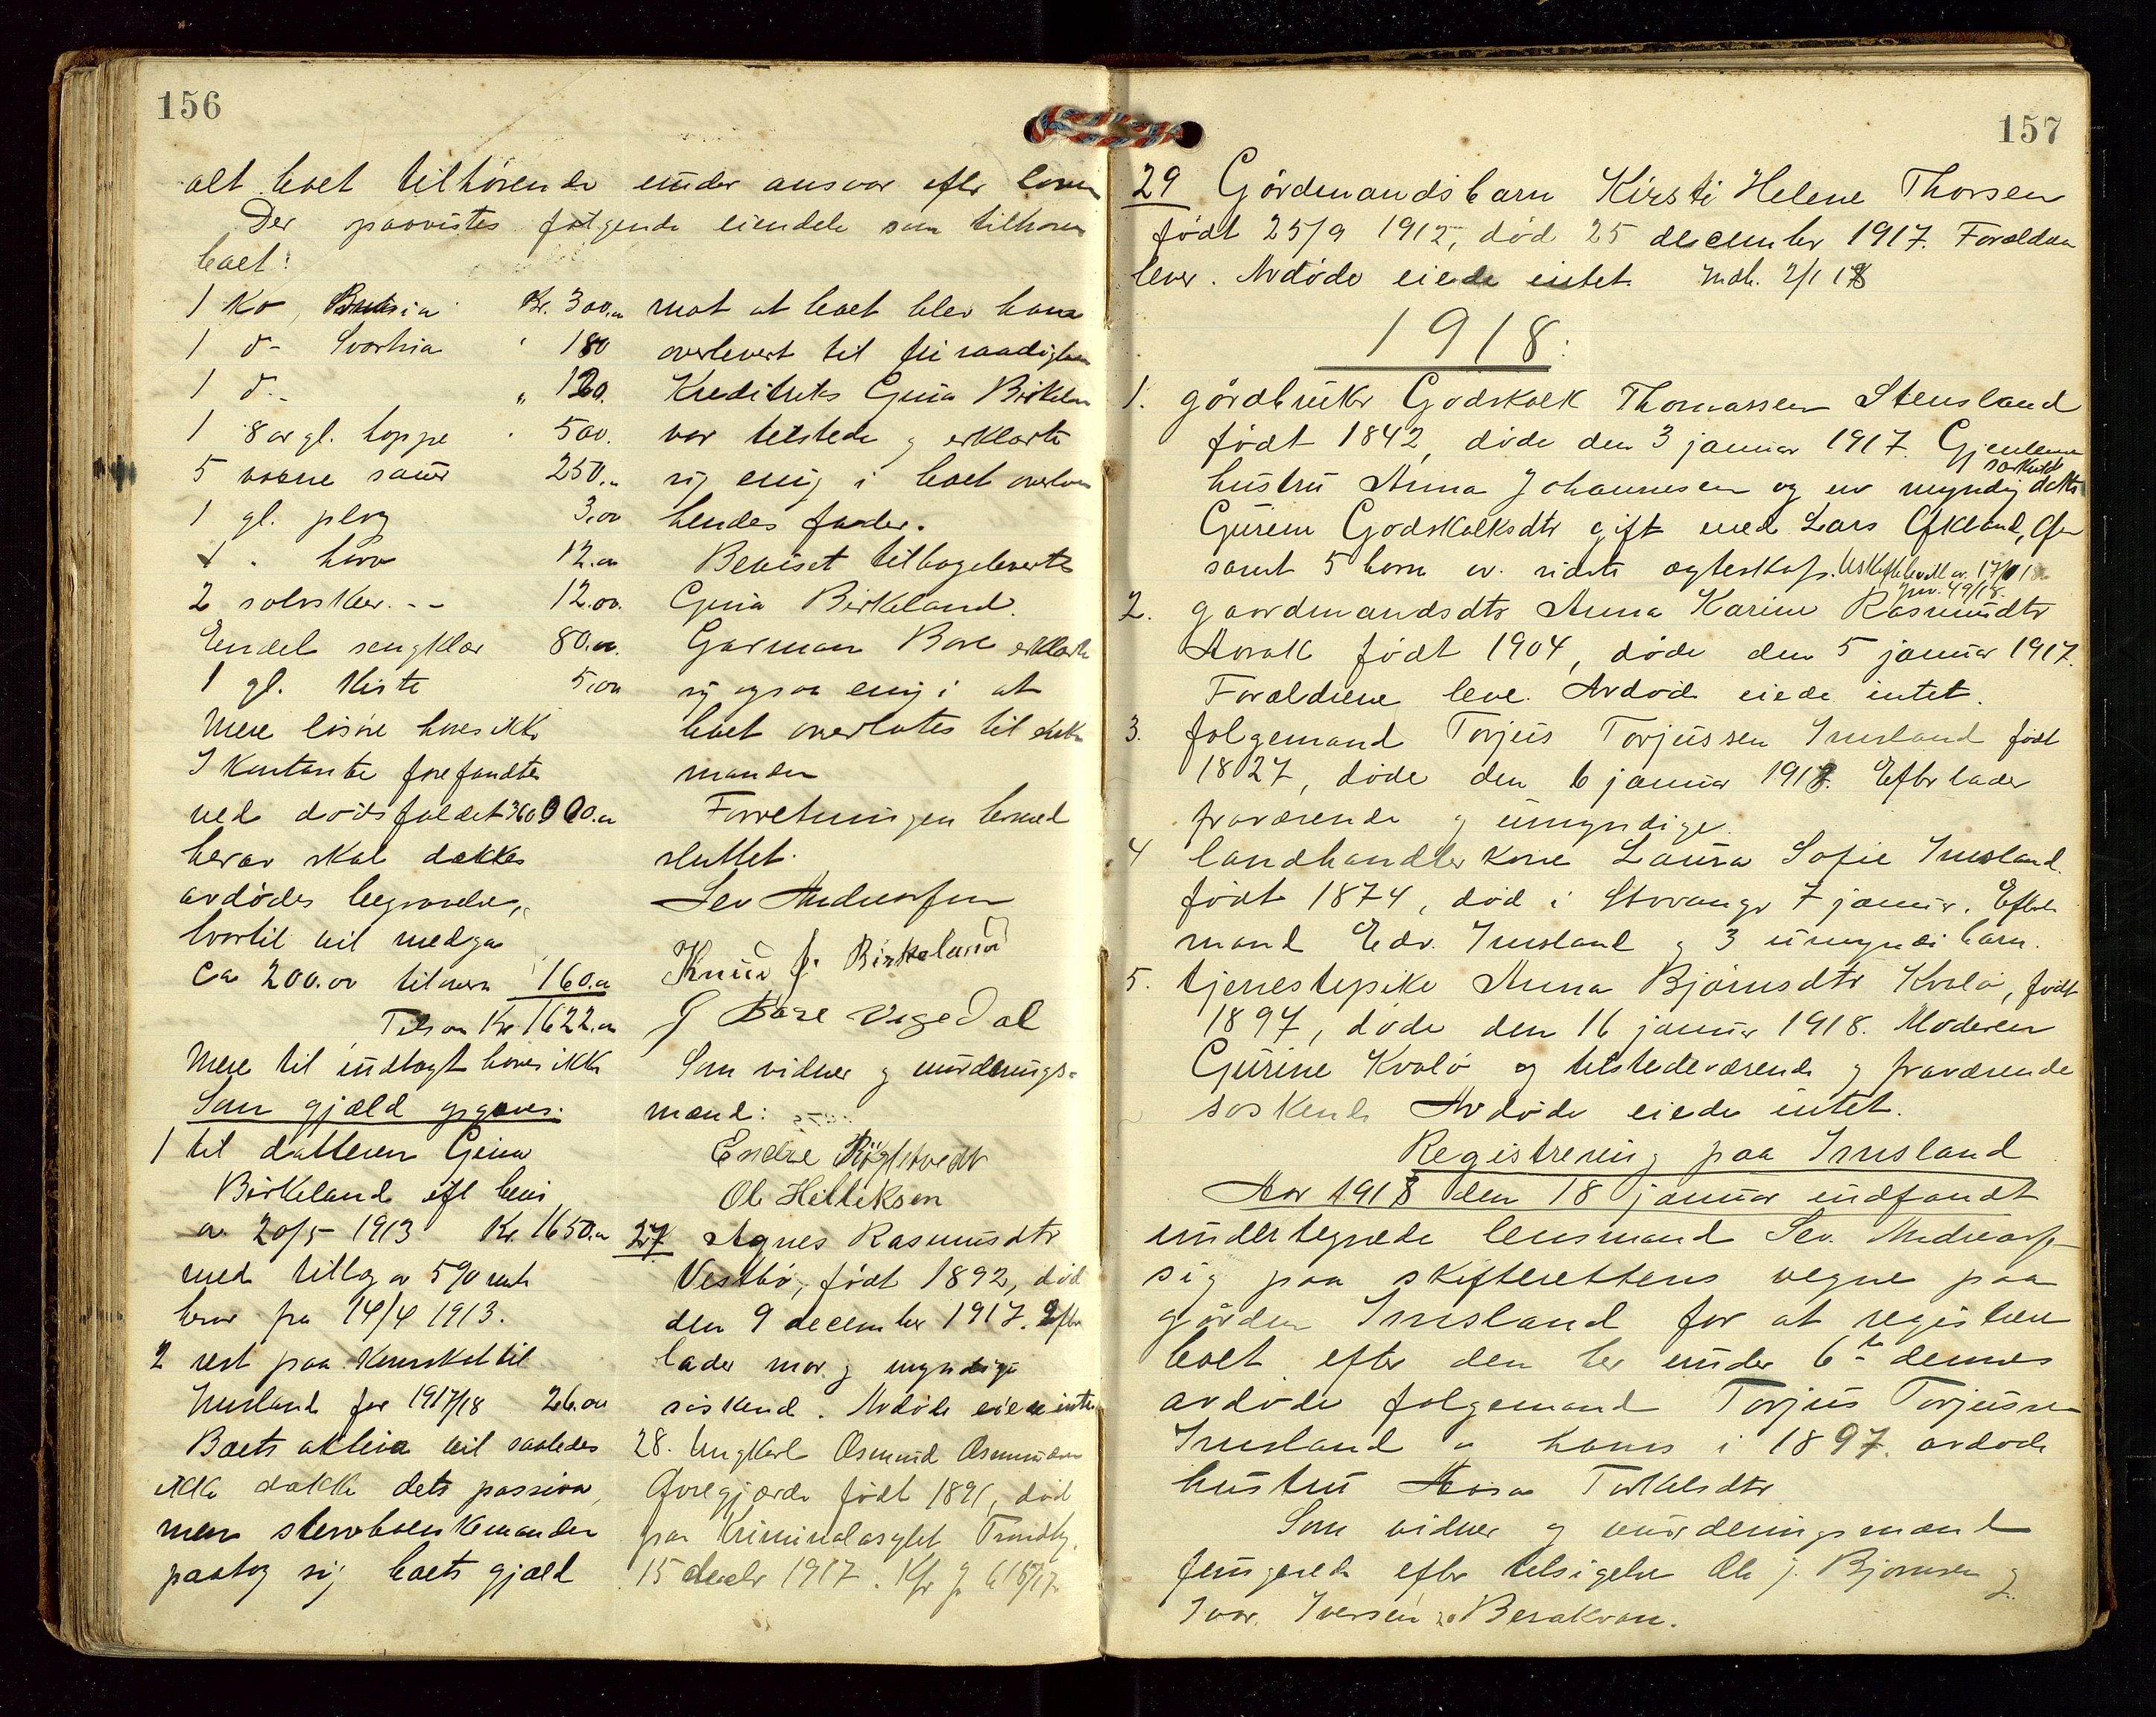 156
alt boet tilhörende under ansvar efter loven
Der paavistes følgende eiendele som tilhører
boet:
1 Ko, Kr. 300.00
1 do Svartsia " 180
1 do " 120.
1 8 aar gl. hoppe " 500.
5 voxne sauer 250.00
1 gl. plog 3.00
1 " harv 12.00
2 sølvskeer -- 12.00.
Endel sengklær 80.00.
1 gl. kiste 5.00
Mere lösöre haves ikke
I Kontanter forefandtes
ved dödsfaldet 360.00
herav skal dækkes
avdödes begravelse,
hvortil vil medgaa
ca 200.00 tilovers 160.00
Tilsam Kr 1622.00
Mere til indtægt haves ikke
Som gjæld opgaves:
1 til datteren Gina
Birkeland efter bevis
av 20/5 1913 Kr. 1650.00
med tillæg av 5% rente
herav fra 14/4 1913.
2 rest paa Komskat til
Imsland for 1917/18 26.00
Boets aktiva vil saaledes
ikke dække dets passiva,
men stervboenkemanden
paatog sig boets gjæld
mot at boet blev ham
overlevert til fri raadighet
Kreditriks Gina Birkeland
var tilstede og erklærte
sig enig i boet overlates
hendes fader.
Beviset tilbageleverte
Gina Birkeland.
Garman Bore erklærte
sig ogsaa enig i at
boet overlates til enke
manden
Forretningen hermed
sluttet.
Sev Andreassen
Knud J. Birkeland
G Bore Vagedal
Som vidner og vurderings-
mænd:
Endre
Ole Hilliksen
27 Agnes Rasmusdtr
Vestbö, født 1892, död
den 9 december 1917. Efter
lader mor og myndige
söskend. Avdöde eier intet
28. Ungkarl Osmund Osmundsen
født 1891, död
paa Kriminalasylet Trondhj.
15 decbr 1917. Kfr J 615/17
157
29 Gårdmandsbarn Kirsti Helene Thorsen
født 25/9 1912, död 25 december 1917. Forældrene
lever. Avdöde eiede intet. Indb. 2/1 18
1918:
1. gårdbruker Godskalk Thomassen Stensland
født 1842, døde den 3 januar 1917. Gjenlevende
særkuld
hustru Anna Johannesen og en myndig datter
Guren Godskalksdtr gift med Lars Ökland,
samt 5 børn av sidste ægteskap. Uskiftebevill. av 17/1 18
Jnr. 49/18.
2. gaardmandsdtr Anna Karine Rasmusdtr
Aarak født 1904, døde den 5 januar 1917.
Forældrene leve. Avdöde eiede intet.
3. følgemand Torjus Torjussen Imsland født
1827, døde den 6 januar 1918. Efterlader
fraværende og umyndige.
4 landhandlerkone Laura Sofie Imsland.
født 1874, död i Stavanger 7 januar. Efterl.
mand Edv. Imsland og 3 umyndi barn.
5. tjenestepike Anna Bjørnsdtr Kvalö, født
1897, døde den 16 januar 1918. Moderen
Gurine Kvalö og tilstedeværende og fraværende
søskende Avdøde eiede intet.
Registrering paa Imsland
Aar 1918 den 18 januar indfandt
undertegnede lensmand Sev. Andreassen
sig paa skifterettens vegne paa
gården Imsland for at registrere
boet efter den her under 6te dennes
avdøde følgemand Torjus Torjussen
Imsland og hans i 1897 avdøde
hustru Aasa Torkelsdtr
Som vidner og vurderingsmænd
fungerede efter tilsigelse Ole J. Bjørnsen og
Ivar Iversen Berakvam.